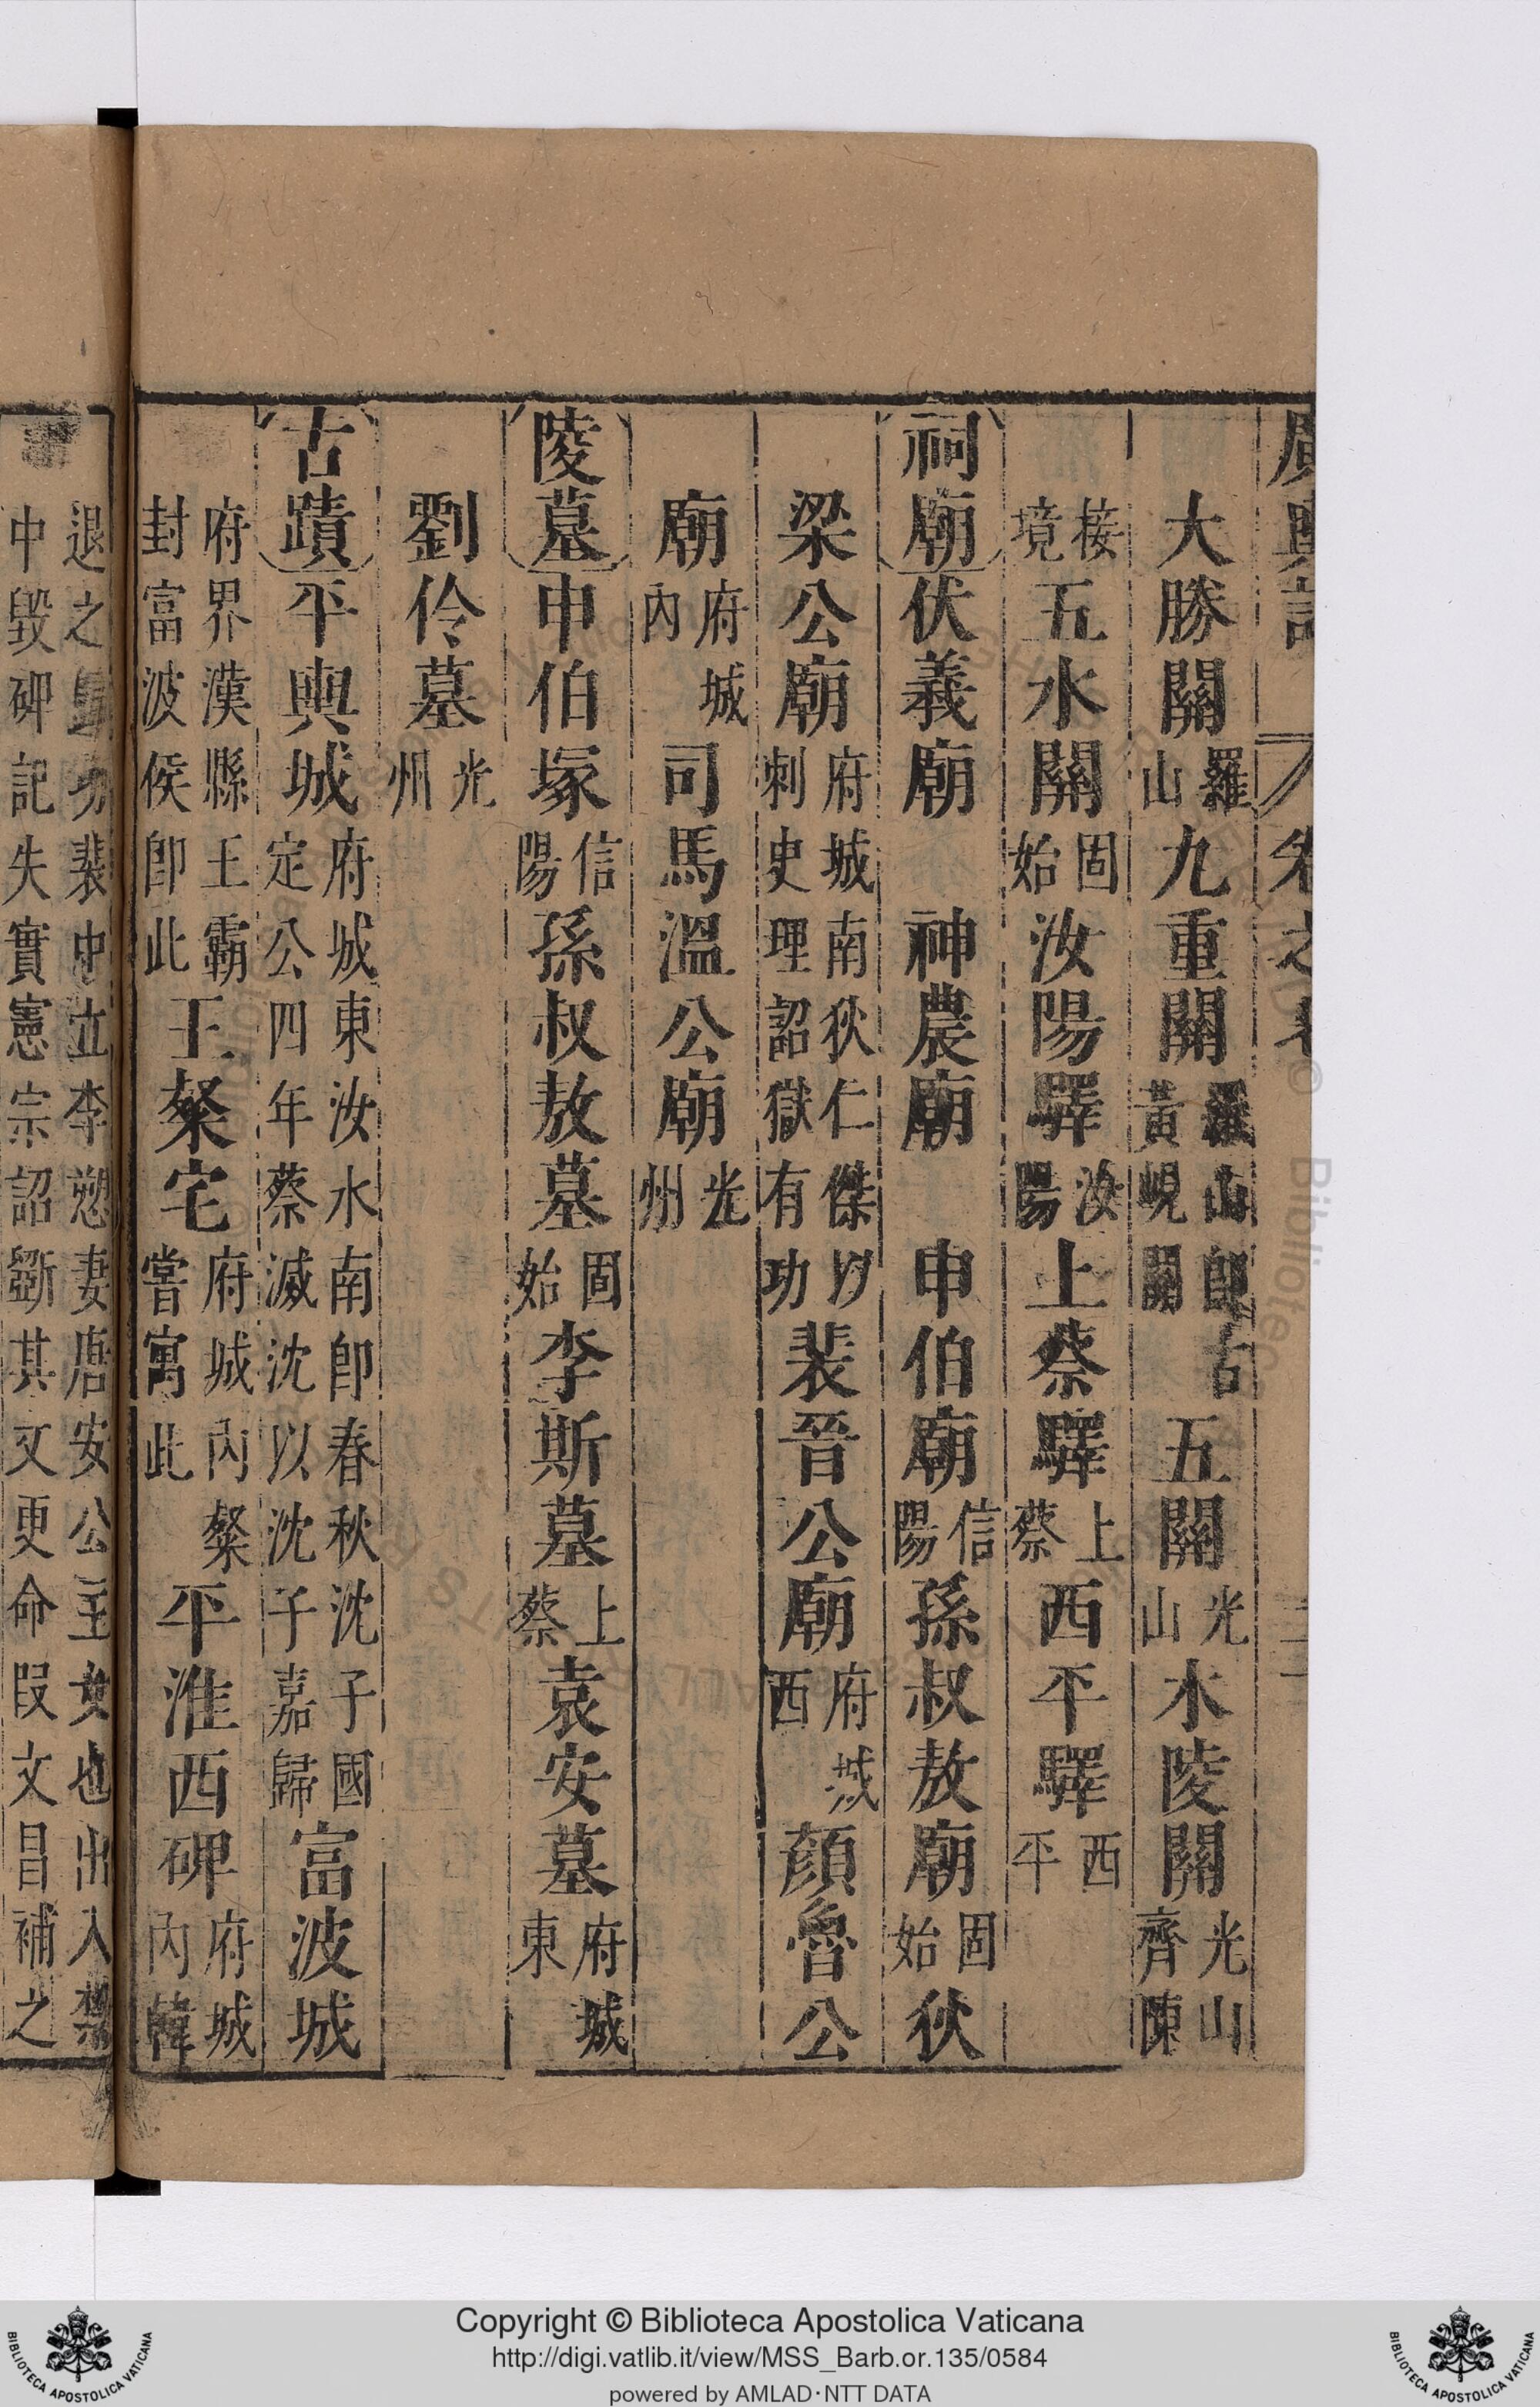 大勝關羅山九重關羅山卽古黃峴關五關光山木陵關光山齊陳
接境五水關固始汝陽驛汝陽上蔡驛上蔡西平驛西平
祠廟伏義廟 神農廟 申伯廟信陽孫叔敖廟固始狄
梁公廟府城南狄仁傑以刺史理詔獄有功裴晉公廟府城西顏魯公
廟府城內司馬溫公廟光州
陵墓申伯塚信陽孫叔敖墓固始李斯墓上蔡袁安墓府城東
劉伶墓光州
古蹟平輿城府城東汝水南卽春秋沈子國定公四年蔡滅沈以沈子嘉歸富波城
府界漢縣王霸封富波侯卽此王粲宅府城內粲嘗寓此平淮西碑府城內韓
退之歸功裴中立李愬妻唐安公主女也出入禁
中毀碑記失實憲宗詔斲其文更命段文昌補之
Copyright © Biblioteca Apostolica Vaticana
http://digi.vatlib.it/view/MSS_Barb.or.135/0584
powered by AMLAD·NTT DATA
BIBLIOTECA APOSTOLICA VATICANA
BIBLIOTECA APOSTOLICA VATICANA